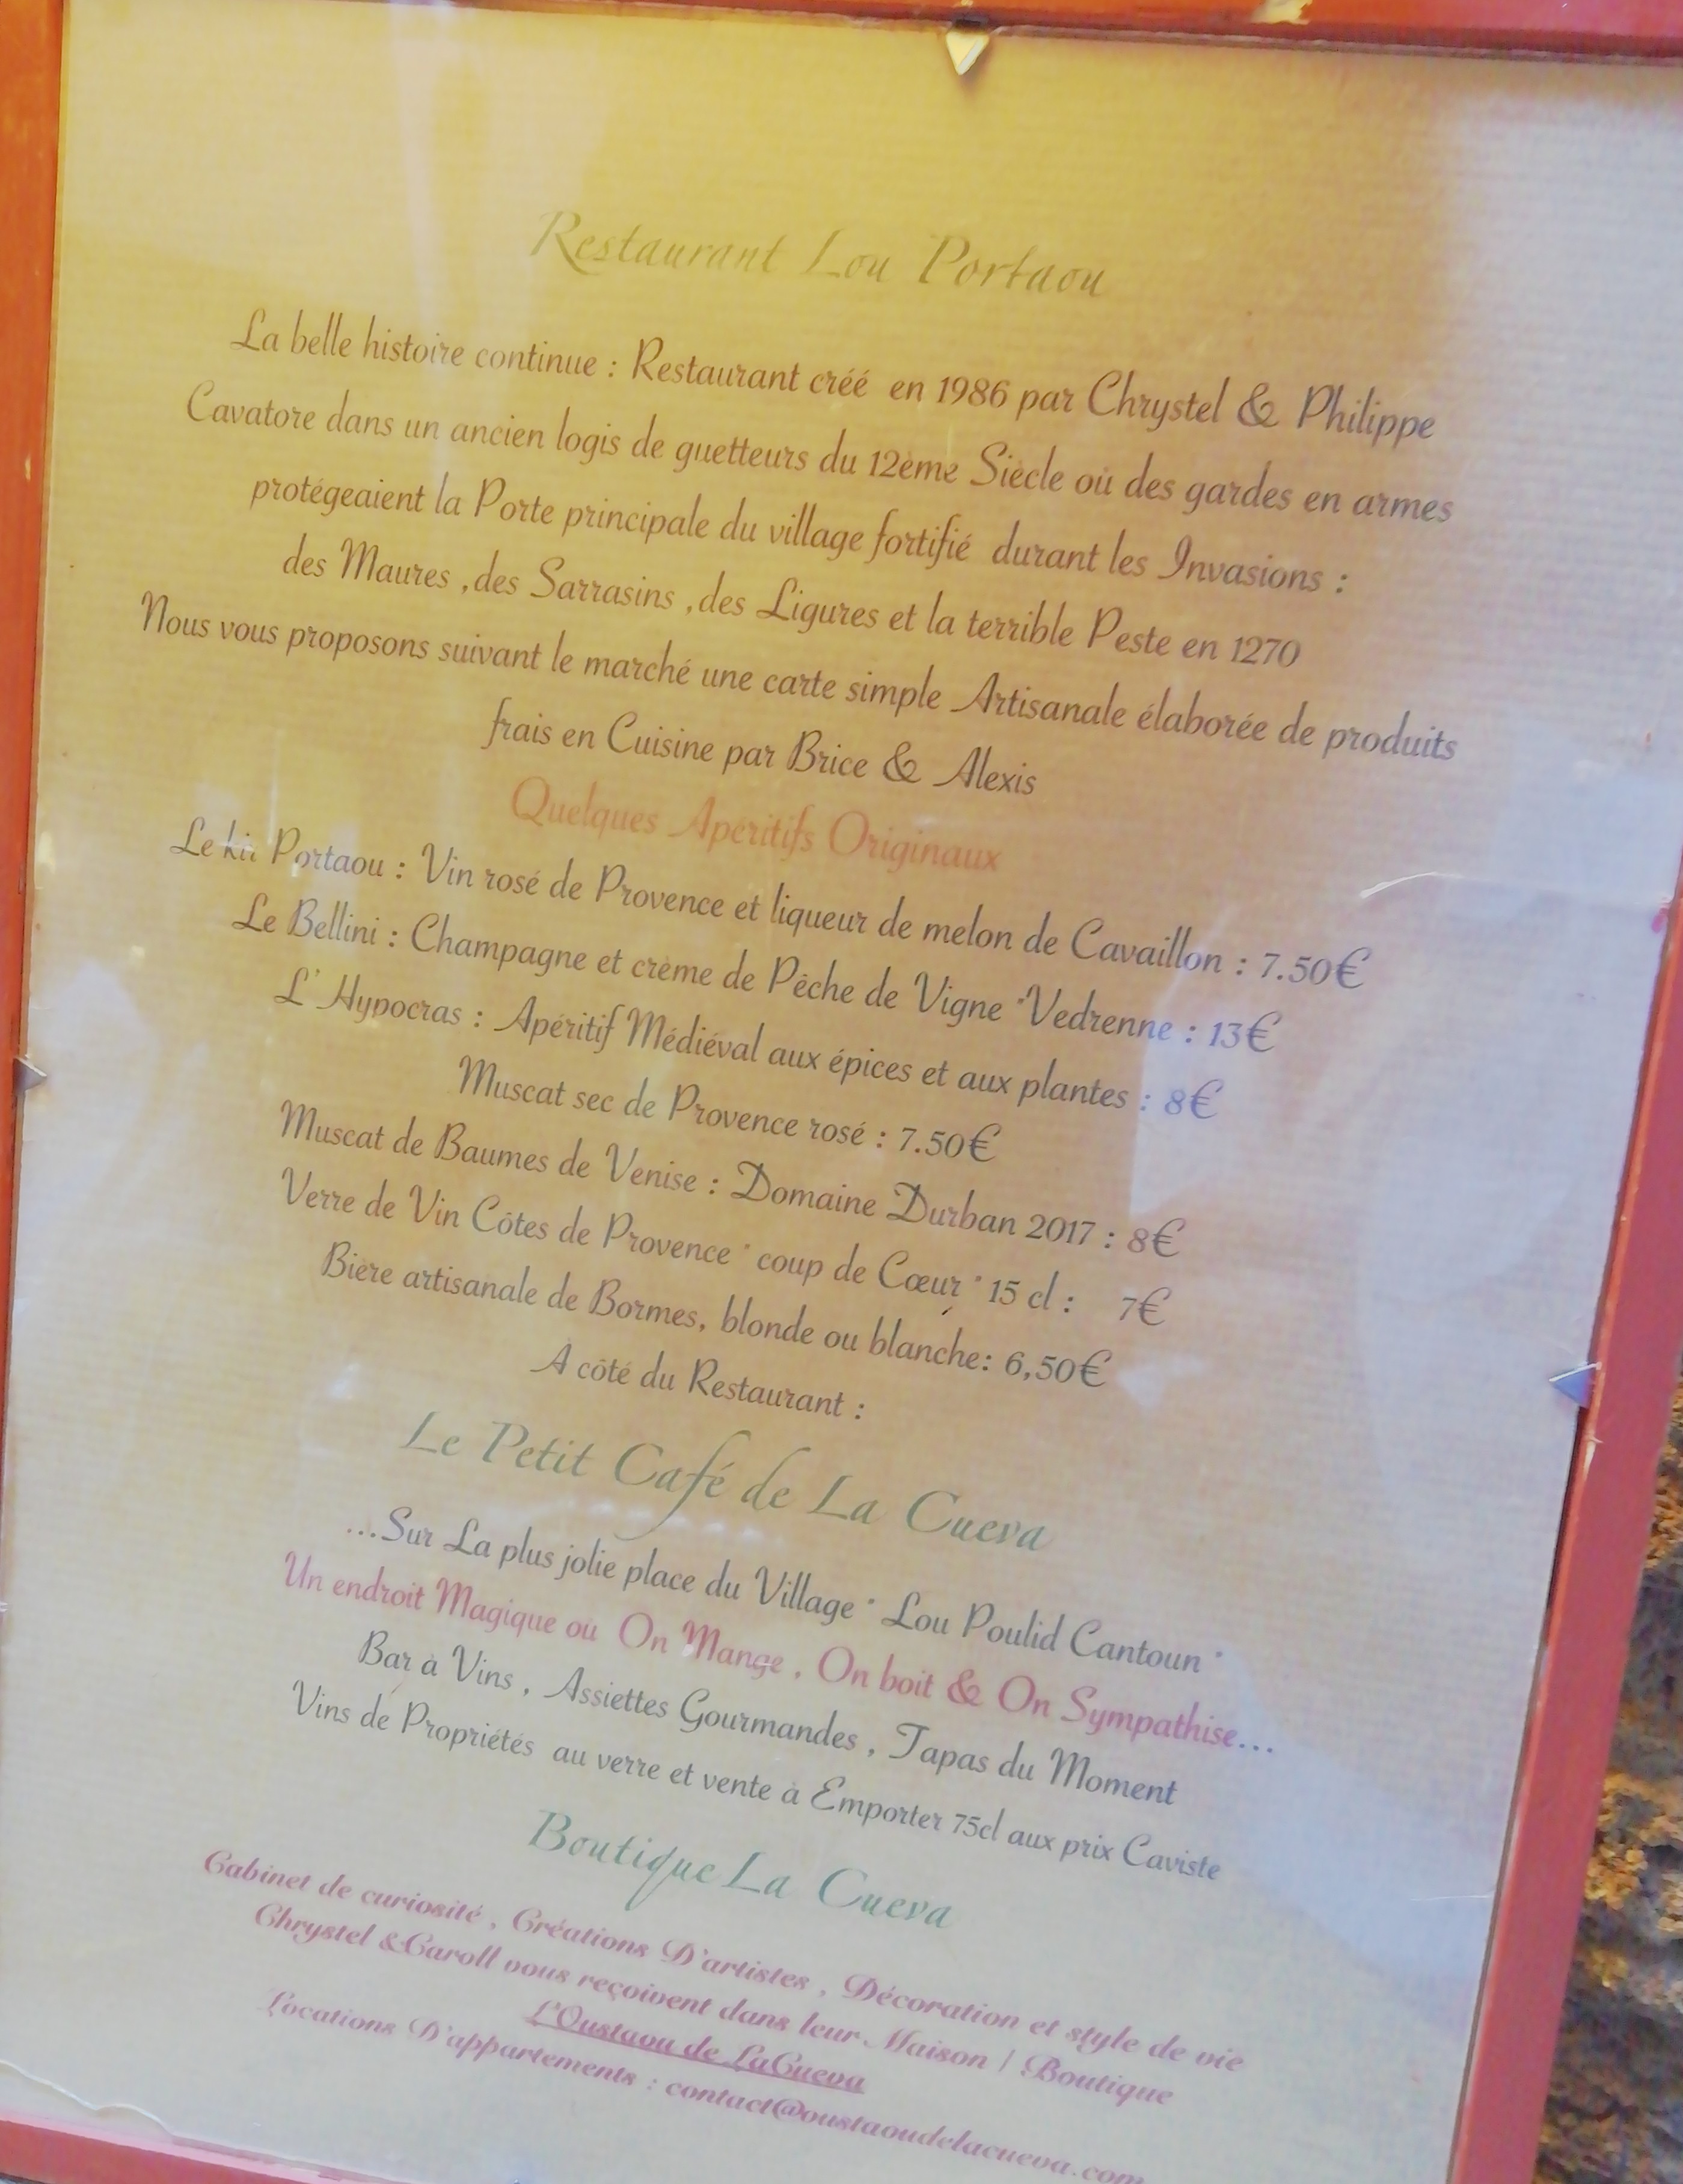 Restaurant Lou Portaou
La belle histoire continue : Restaurant créé en 1986 par Chrystel & Philippe
Cavatore dans un ancien logis de guetteurs du 12ème Siècle où des gardes en armes
protégeaient la Porte principale du village fortifié durant les Invasions :
des Maures ,des Sarrasins ,des Ligures et la terrible Peste en 1270
Nous vous proposons suivant le marché une carte simple Artisanale élaborée de produits
frais en Cuisine par Brice & Alexis
Quelques Apéritifs Originaux
Le kir Portaou : Vin rosé de Provence et liqueur de melon de Cavaillon : 7.50€
Le Bellini : Champagne et crème de Pêche de Vigne "Vedrenne : 13€
L' Hypocras : Apéritif Médiéval aux épices et aux plantes : 8€
Muscat sec de Provence rosé : 7.50€
Muscat de Baumes de Venise : Domaine Durban 2017 : 8€
Verre de Vin Côtes de Provence " coup de Cœur " 15 cl : 7€
Bière artisanale de Bormes, blonde ou blanche: 6,50€
A côté du Restaurant :
Le Petit Café de La Cueva
...Sur La plus jolie place du Village " Lou Poulid Cantoun "
Un endroit Magique où On Mange , On boit & On Sympathise...
Bar à Vins , Assiettes Gourmandes , Tapas du Moment
Vins de Propriétés au verre et vente à Emporter 75cl aux prix Caviste
Boutique La Cueva
Cabinet de curiosité , Créations D'artistes , Décoration et style de vie
Chrystel &Caroll vous reçoivent dans leur Maison / Boutique
L'Oustaou de LaCueva
Locations D'appartements : contact@oustaoudelacueva.com